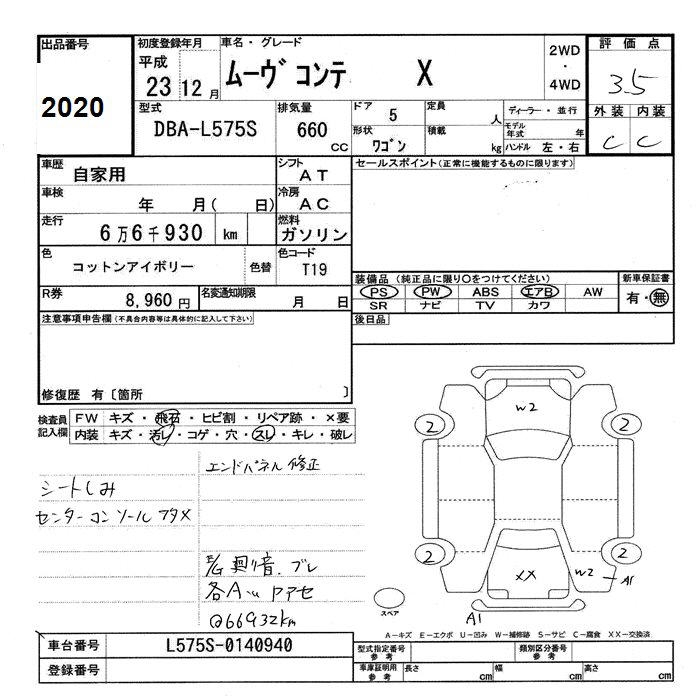 出品番号
2020
初度登録年月
平成
23 12月
車名・グレード
ムーヴ コンテ X
2WD
・
4WD
評価点
3.5
外装 内装
C C
型式
DBA-L575S
排気量
660
CC
ドア 5
形状
ワゴン
定員
人
積載
kg
ディーラー・並行
モデル年式 年
ハンドル 左・右
車歴
自家用
シフト
AT
車検
年 月( 日)
冷房
AC
走行
6万6千930 km
燃料
ガソリン
色
コットンアイボリー
色替
色コード
T19
R券
8,960円
名変通知期限
月 日
セールスポイント(正常に機能するものに限ります)
装備品 (純正品に限り〇をつけてください)
PS PW ABS エアB AW
SR ナビ TV カワ
新車保証書
有・無
後日品
注意事項申告欄(不具合内容等は具体的に記入して下さい)
修復歴 有〔箇所 〕
検査員記入欄
FW キズ・飛石・ヒビ割・リペア跡・×要
内装 キズ・汚レ・コゲ・穴・スレ・キレ・破レ
エンドパネル修正
シートしみ
センターコンソールフタX
異音、ブレ
@66932km
W2
2 2
2 2
XX
W2
A1
A1
スペア
A－キズ E－エクボ U－凹み W－補修跡 S－サビ C－腐食 XX－交換済
車台番号 L575S-0140940
登録番号
型式指定番号
参考
類別区分番号
参考
車庫証明用
参考
長さ cm
幅 cm
高さ cm